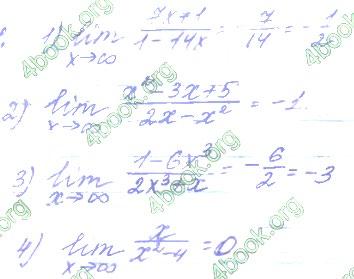 1) lim x→∞ (7x+1)/(1-14x) = -7/14 = -1/2
2) lim x→∞ (x²-3x+5)/(2x-x²) = -1
3) lim x→∞ (1-6x³)/(2x³+x) = -6/2 = -3
4) lim x→∞ x/(x²-4) = 0
4book.org
4book.org
4book.org
4book.org
4book.org
4book.org